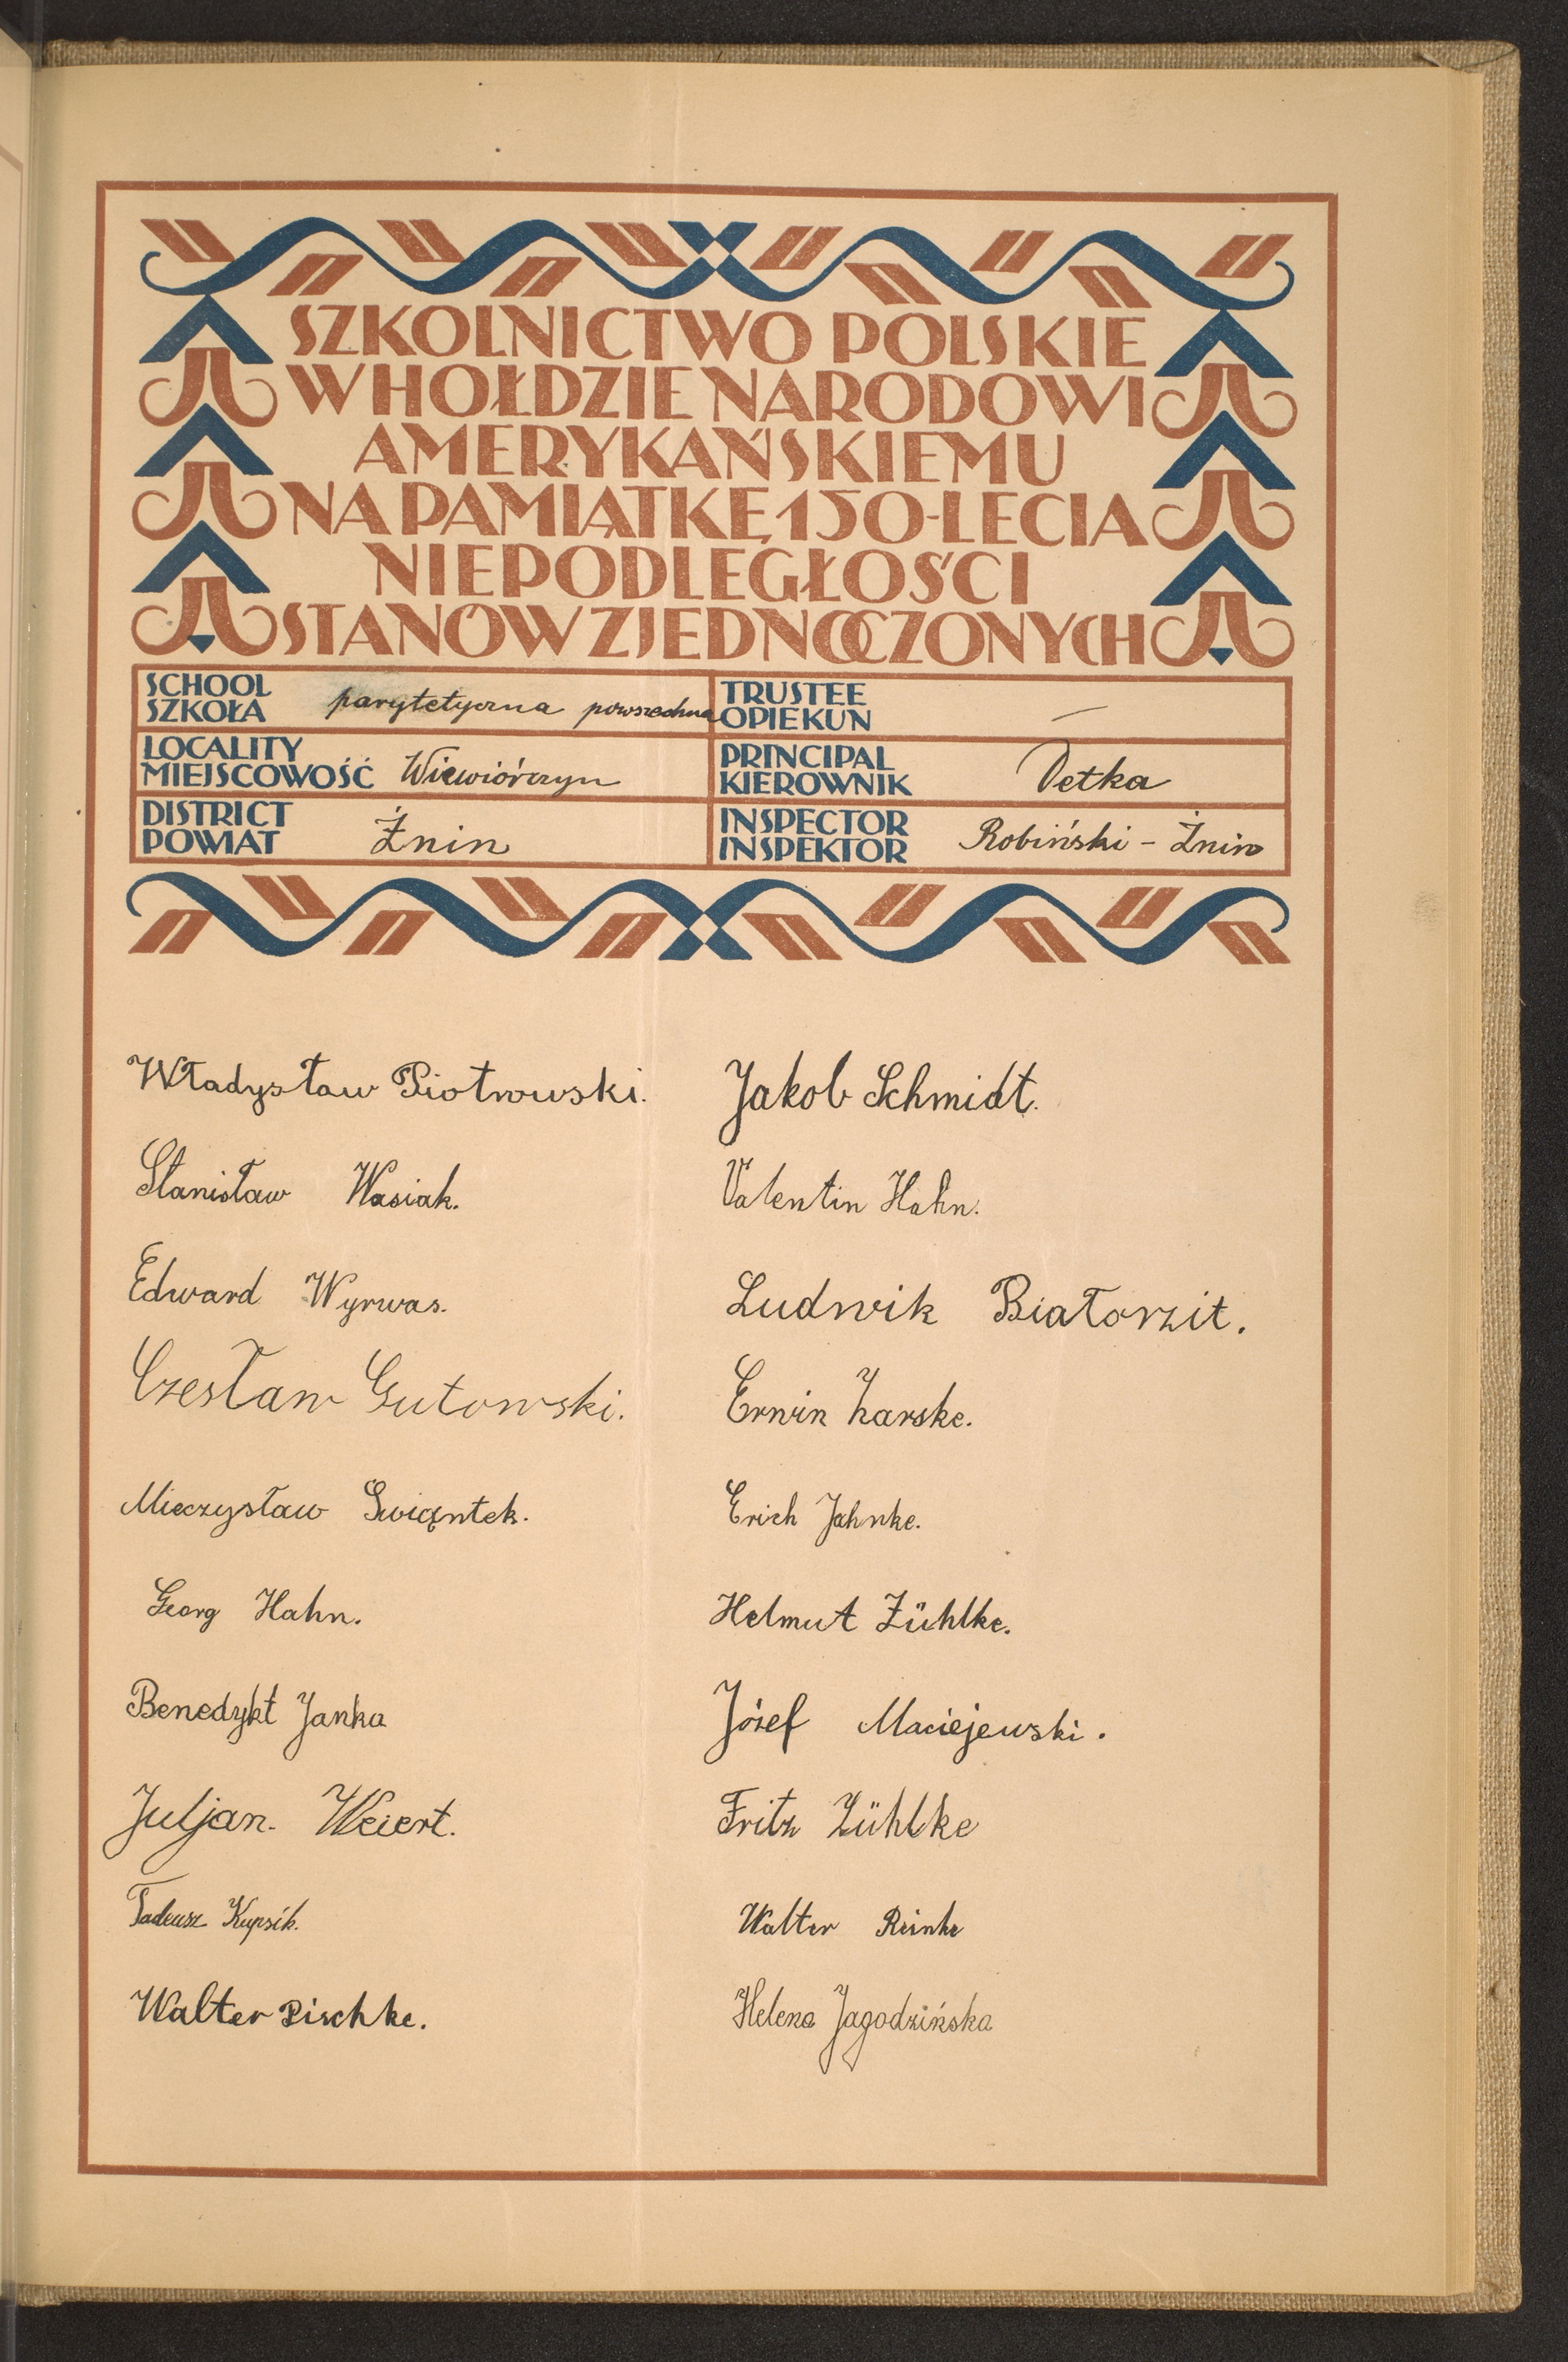 SZKOLNICTWO POLSKIE
W HOŁDZIE NARODOWI
AMERYKAŃSKIEMU
NA PAMIĄTKĘ 150-LECIA
NIEPODLEGŁOŚCI
STANÓW ZJEDNOCZONYCH
SCHOOL
SZKOŁA parytetyczna powszechna
TRUSTEE
OPIEKUN —
LOCALITY
MIEJSCOWOŚĆ Wiewiórczyn
PRINCIPAL
KIEROWNIK Detka
DISTRICT
POWIAT Żnin
INSPECTOR
INSPEKTOR Robiński – Żnin
Władysław Piotrowski.
Stanisław Wasiak.
Edward Wyrwas.
Czesław Gutowski.
Mieczysław Świąntek.
Georg Hahn.
Benedykt Janka
Juljan. Weiert.
Tadeusz Kupsik.
Walter Pischke.
Jakob Schmidt.
Valentin Hahn.
Ludwik Białorzit.
Erwin Zarske.
Erich Jahnke.
Helmut Zühlke.
Józef Maciejewski.
Fritz Zühlke
Walter Reinke
Helena Jagodzińska